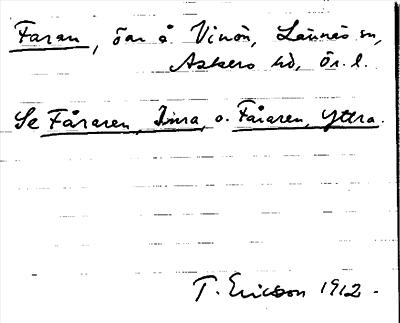 Faran, öar å Vinön, Lännäs sn,
Askers hd, Ör. l.
Se Fåraren, Inra, o. Fåraren, Yttra.
T. Ericson 1912.